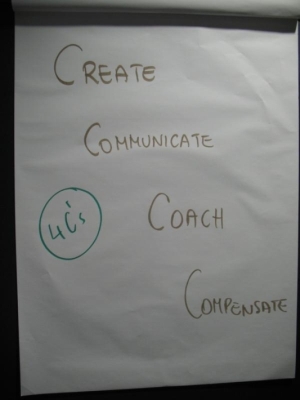 CREATE
COMMUNICATE
4C's
COACH
COMPENSATE